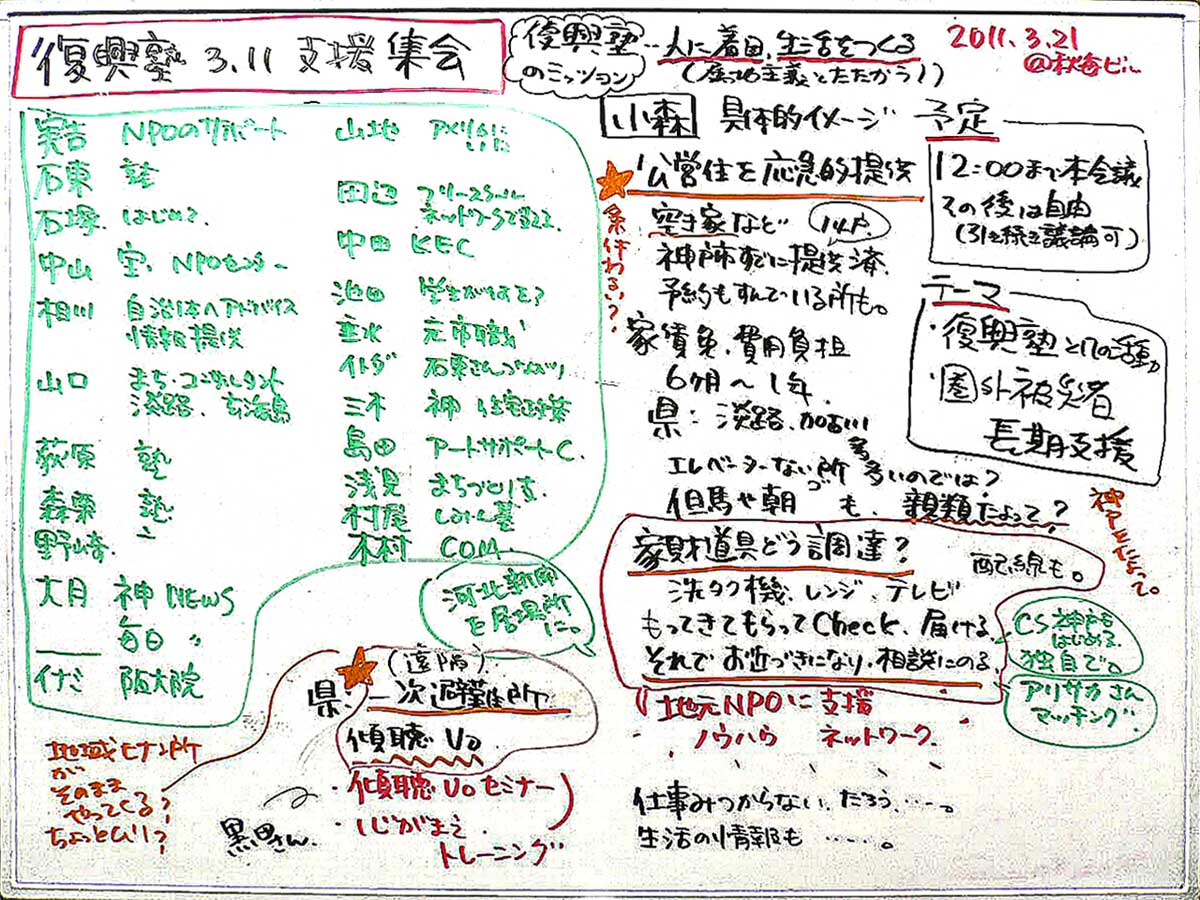 復興塾 3.11 支援集会
復興塾
のミッション
人に着目、生活をつくる
2011.3.21
実吉 NPOのサポート
石東 塾
石塚 はじめ?
中山 宝、NPOセンター
相川 自治体へアドバイス
情報提供
山口 まち・コンサルタント
淡路、玄海島
荻原 塾
森栗 塾
野崎
大月 神NEWS
毎日 〃
イナミ 阪大院
山地
田辺 フリースクール
中田 KEC
池田 学生が何を?
垂水 元市職
三木 神 住宅政策
島田 アートサポートC.
浅見
村尾
木村 COM.
河北新聞
を居場所
に。
小森 具体的イメージ
公営住を応急的提供
空き家など
神戸市すでに提供済。
予約もすんでいる所も。
条件わるい?
家賃免、費用負担
6ヶ月〜1年。
県:淡路、加古川
エレベーターない所 多いのでは?
但馬や朝 も、親類たよって?
神戸にたよって。
予定
12:00まで本会議
その後は自由
(引き続き議論可)
テーマ
・復興塾としての活動
・圏外被災者
長期支援
家財道具どう調達?
配線も。
洗タク機、レンジ、テレビ
もってきてもらってCheck、届ける。
それでお近づきになり、相談にのる。
CS神戸も
はじめる。
独自で。
アリサカさん
マッチング
地元NPOに支援
ノウハウ ネットワーク。
仕事みつからない、だろう…。
生活の情報も……。
(遠隔)
県:一次避難所
傾聴Vo
・傾聴Voセミナー
・心がまえ
トレーニング
黒田さん。
地域ヒナン所
が
そのまま
やってくる?
ちょっとムリ?